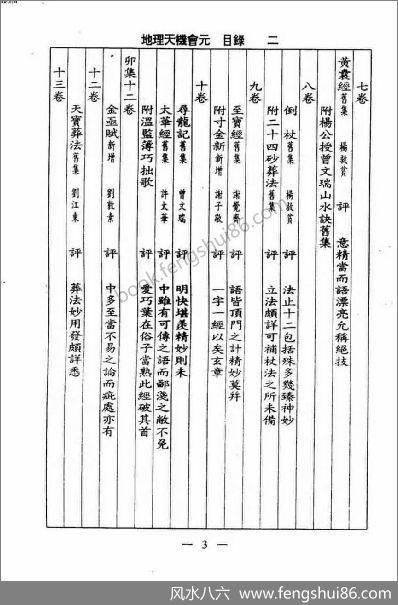 地理天機會元 目錄 二
七卷
黃囊經舊集 楊救貧 評 意精當而語漂亮允稱絕技
附楊公授曾文瑞山水訣舊集
八卷
倒杖舊集 楊救貧 評 法止十二包括殊多幾臻神妙
附二十四砂葬法舊集 評 立法頗詳可補杖法之所未備
九卷
至寶經舊集 謝覺齋 評 語皆頂門之針精妙莫并
附寸金新新增 謝子敬 評 一字一經以矣玄章
十卷
尋龍記舊集 曾文瑞 評 明快堪羨精妙則未
太華經舊集 許太華 評 中雖有可傳之語而鄙淺之敝不免
附溫監簿巧拙歌 評 愛巧葉在俗子當熟此經破其首
卯集十二卷
金函賦新增 劉敦素 評 中多至當不易之論而疵處亦有
十二卷
天寶葬法舊集 劉江東 評 葬法妙用發頗詳悉
十三卷
— 3 —
book.fengshui86.com
风水八六 www.fengshui86.com